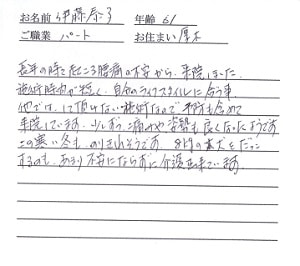 お名前 伊藤 年齢 61
ご職業 パート お住まい 厚木
長年の時々起こる腰痛の不安から、来院しました。
施術時間が短く、自分のライフスタイルに合う事、
他では、して頂けない施術なので予防も含めて
来院しています。少しずつ、痛みや姿勢も良くなったようです。
この寒い冬も、のりきれそうです。8kgの愛犬をだっこ
するのも、あまり不安にならずに介護出来ています。